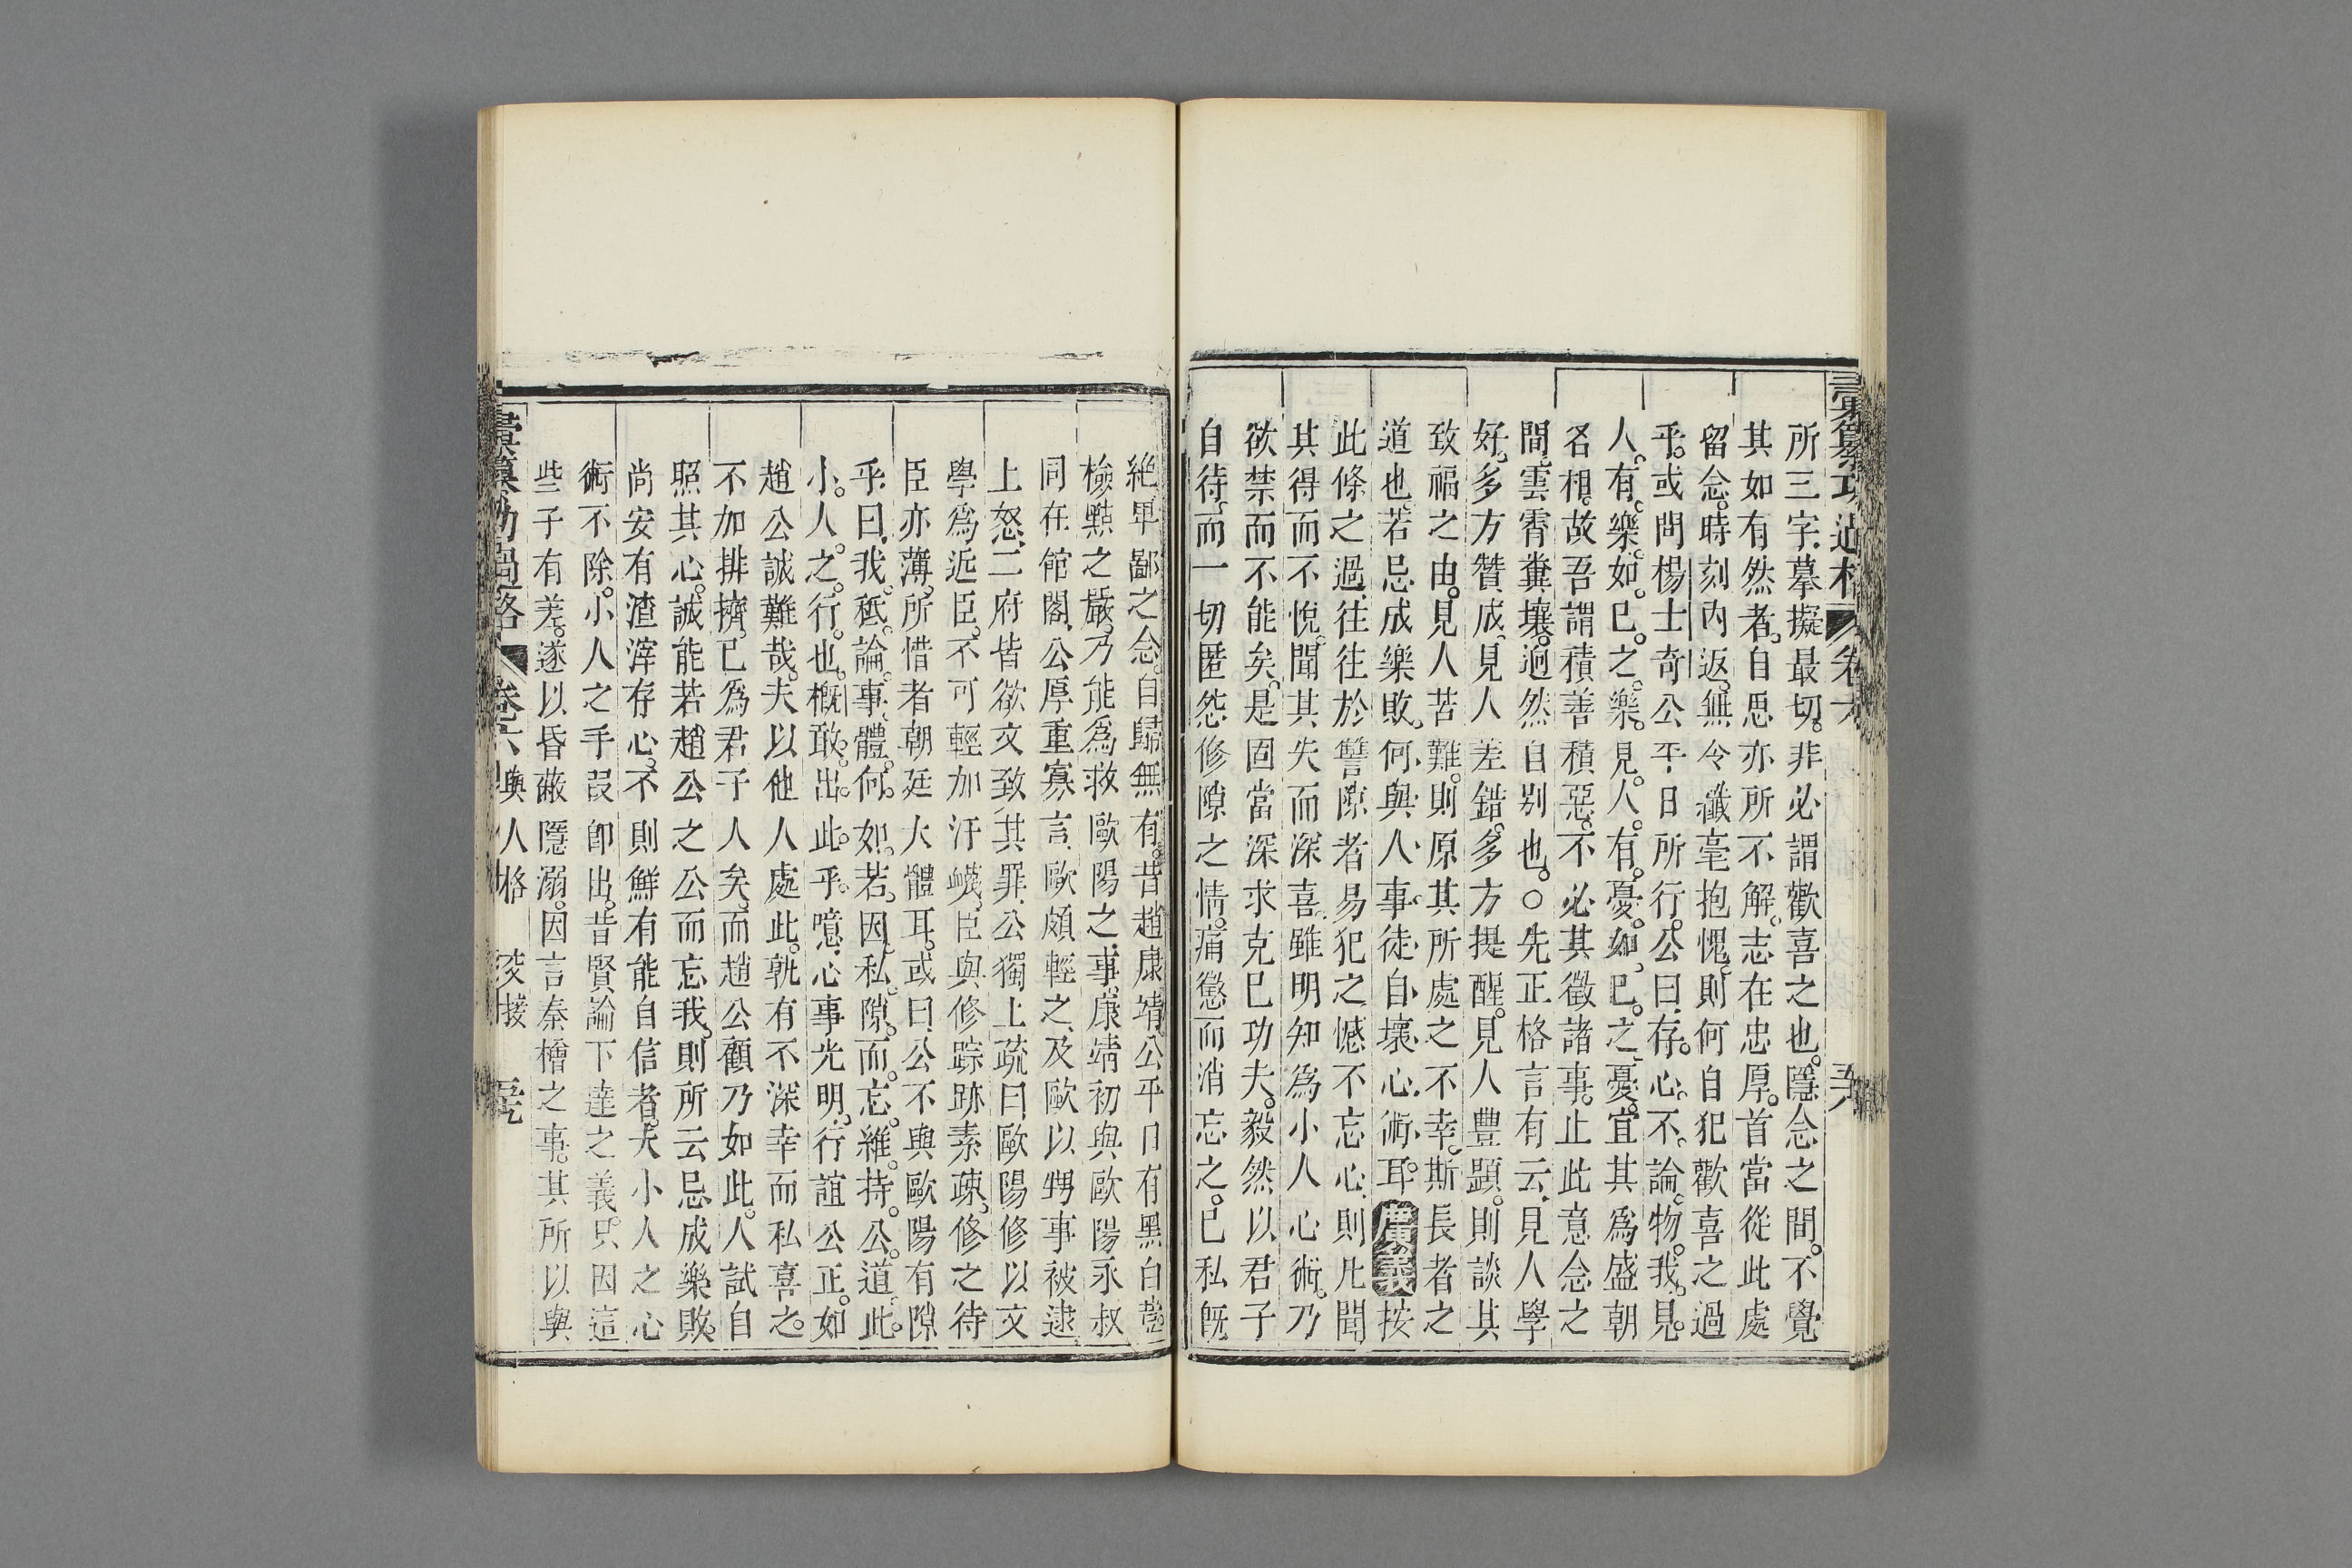 彙纂功過格 卷六 五六
所三字摹擬最切。非必謂歡喜之也。隱念之間。不覺
其如有然者。自思亦所不解。志在忠厚。首當從此處
留念。時刻內返。無令纖毫抱愧。則何自犯歡喜之過
乎。或問楊士奇公平日所行。公曰。存心不論物我。見
人有樂。如己之樂。見人有憂。如己之憂。宜其為盛朝
名相。故吾謂積善積惡。不必其徵諸事。止此意念之
間。雲霄糞壤。逈然自别也。○先正格言有云。見人學
好。多方贊成。見人差錯。多方提醒。見人豐顯。則談其
致福之由。見人苦難。則原其所處之不幸。斯長者之
道也。若忌成樂敗。何與人事。徒自壞心術耳。廣義按
此條之過。往往於讐隙者易犯之。憾不忘心。則凡聞
其得而不悅。聞其失而深喜。雖明知為小人心術。乃
欲禁而不能矣。是固當深求克己功夫。毅然以君子
自待。而一切匿怨修隙之情。痛懲而消忘之。已私旣
絶。卑鄙之念。自歸無有。昔趙康靖公平日有黑白荳
檢點之嚴。乃能為救歐陽之事。康靖初與歐陽永叔
同在館閣。公厚重寡言。歐頗輕之。及歐以甥事被逮
上怒。二府皆欲文致其罪。公獨上疏曰。歐陽修以文
學為近臣。不可輕加汙衊。臣與修踪跡素疎。修之待
臣亦薄。所惜者朝廷大體耳。或曰。公不與歐陽有隙
乎。曰。我秪論事體何如。若因私隙。而忘維持公道。此
小人之行也。槪敢出此乎。噫。心事光明。行誼公正。如
趙公誠難哉。夫以他人處此。孰有不深幸而私喜之
不加排擠。已為君子人矣。而趙公顧乃如此。人試自
照其心。誠能若趙公之公而忘我。則所云忌成樂敗。
尚安有渣滓存心。不則鮮有能自信者。夫小人之心
術不除。小人之手段卽出。昔賢論下達之義。只因這
些子有差。遂以昏蔽隱溺。因言秦檜之事。其所以與
彙纂功過格 卷六 與人格 交接 五七